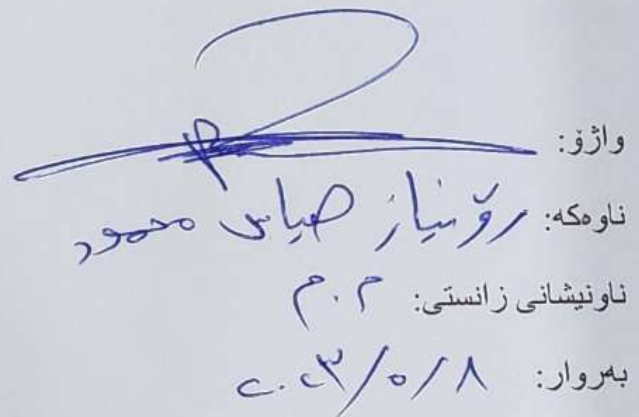 واژۆ:
ناوەکە: رۆنیاز عباس محمود
ناونیشانی زانستی: م.م
بەروار: ٢٠٢٣/٥/٨